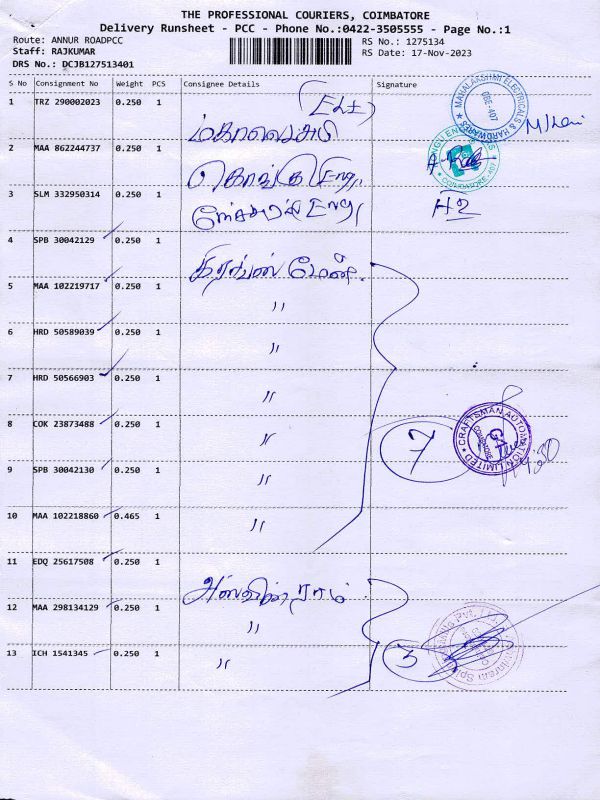 THE PROFESSIONAL COURIERS, COIMBATORE
Delivery Runsheet - PCC - Phone No.:0422-3505555 - Page No.:1
Route: ANNUR ROADPCC
RS No.: 1275134
Staff: RAJKUMAR
RS Date: 17-Nov-2023
DRS No.: DCJB127513401
S No Consignment No Weight PCS Consignee Details Signature
1 TRZ 290002023 0.250 1
மகாலட்சுமி
2 MAA 862244737 0.250 1
கொங்கு
3 SLM 332950314 0.250 1
4 SPB 30042129 0.250 1
5 MAA 102219717 0.250 1 "
6 HRD 50589039 0.250 1 "
7 HRD 50566903 0.250 1 "
8 COK 23873488 0.250 1 "
7
CRAFTSMAN AUTOMATION LIMITED
COIMBATORE
9 SPB 30042130 0.250 1 "
10 MAA 102218860 0.465 1 "
11 EDQ 25617508 0.250 1
அஸ்வின் ராம்
12 MAA 298134129 0.250 1 "
13 ICH 1541345 0.250 1 "
3
MAHALAKSHMI ELECTRICALS & HARDWARES